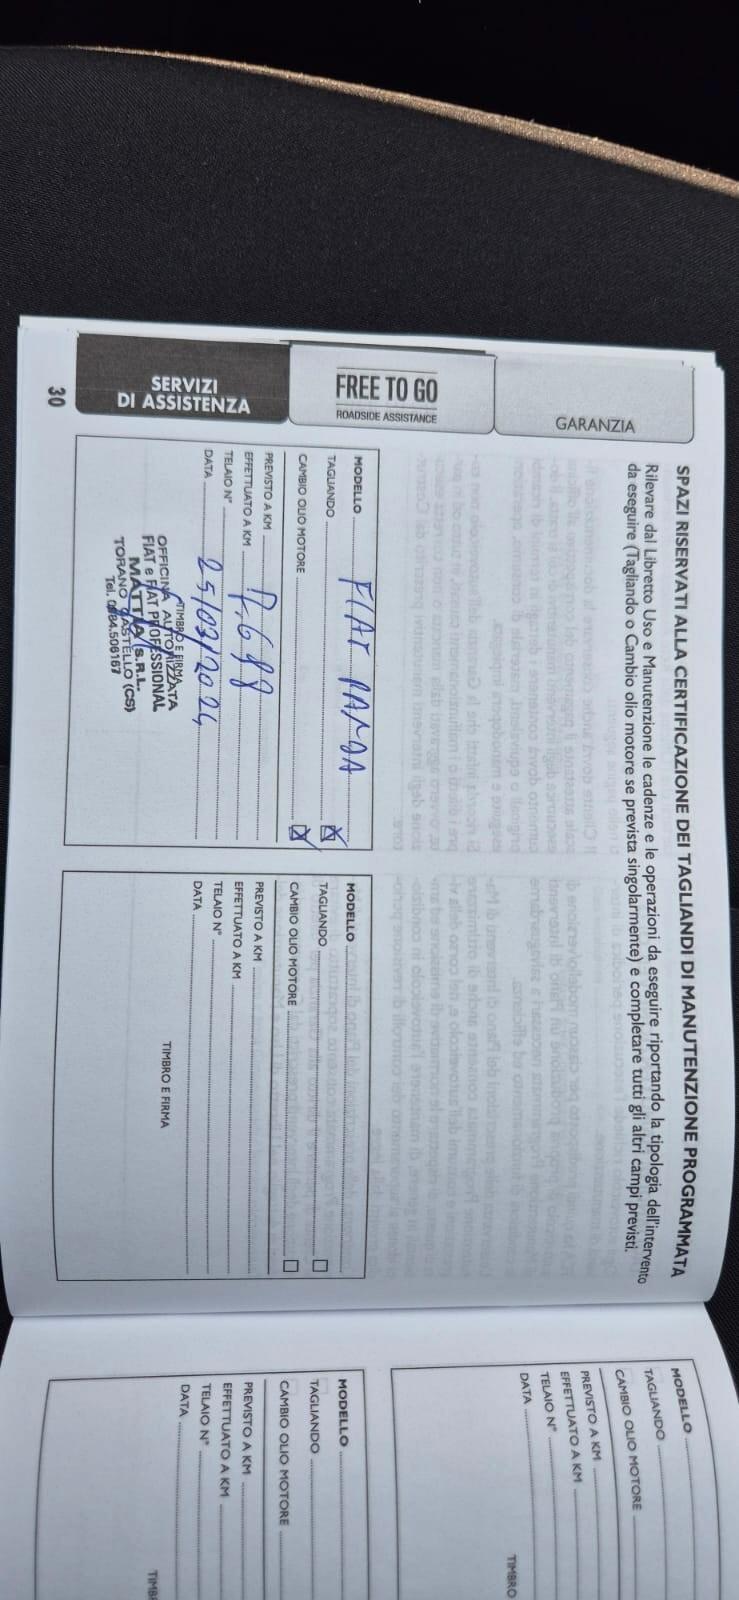 GARANZIA
FREE TO GO
ROADSIDE ASSISTANCE
SERVIZI
DI ASSISTENZA
30
SPAZI RISERVATI ALLA CERTIFICAZIONE DEI TAGLIANDI DI MANUTENZIONE PROGRAMMATA
Rilevare dal Libretto Uso e Manutenzione le cadenze e le operazioni da eseguire riportando la tipologia dell'intervento
da eseguire (Tagliando o Cambio olio motore se prevista singolarmente) e completare tutti gli altri campi previsti.
MODELLO FIAT PANDA
TAGLIANDO
CAMBIO OLIO MOTORE
PREVISTO A KM
EFFETTUATO A KM
TELAIO N°
DATA 25/03/2024
TIMBRO E FIRMA
OFFICINA AUTORIZZATA
FIAT e FIAT PROFESSIONAL
MATTIA S.R.L.
TORANO CASTELLO (CS)
Tel. 0984.506167
MODELLO
TAGLIANDO
CAMBIO OLIO MOTORE
PREVISTO A KM
EFFETTUATO A KM
TELAIO N°
DATA
TIMBRO E FIRMA
MODELLO
TAGLIANDO
CAMBIO OLIO MOTORE
PREVISTO A KM
EFFETTUATO A KM
TELAIO N°
DATA
TIMBRO
MODELLO
TAGLIANDO
CAMBIO OLIO MOTORE
PREVISTO A KM
EFFETTUATO A KM
TELAIO N°
DATA